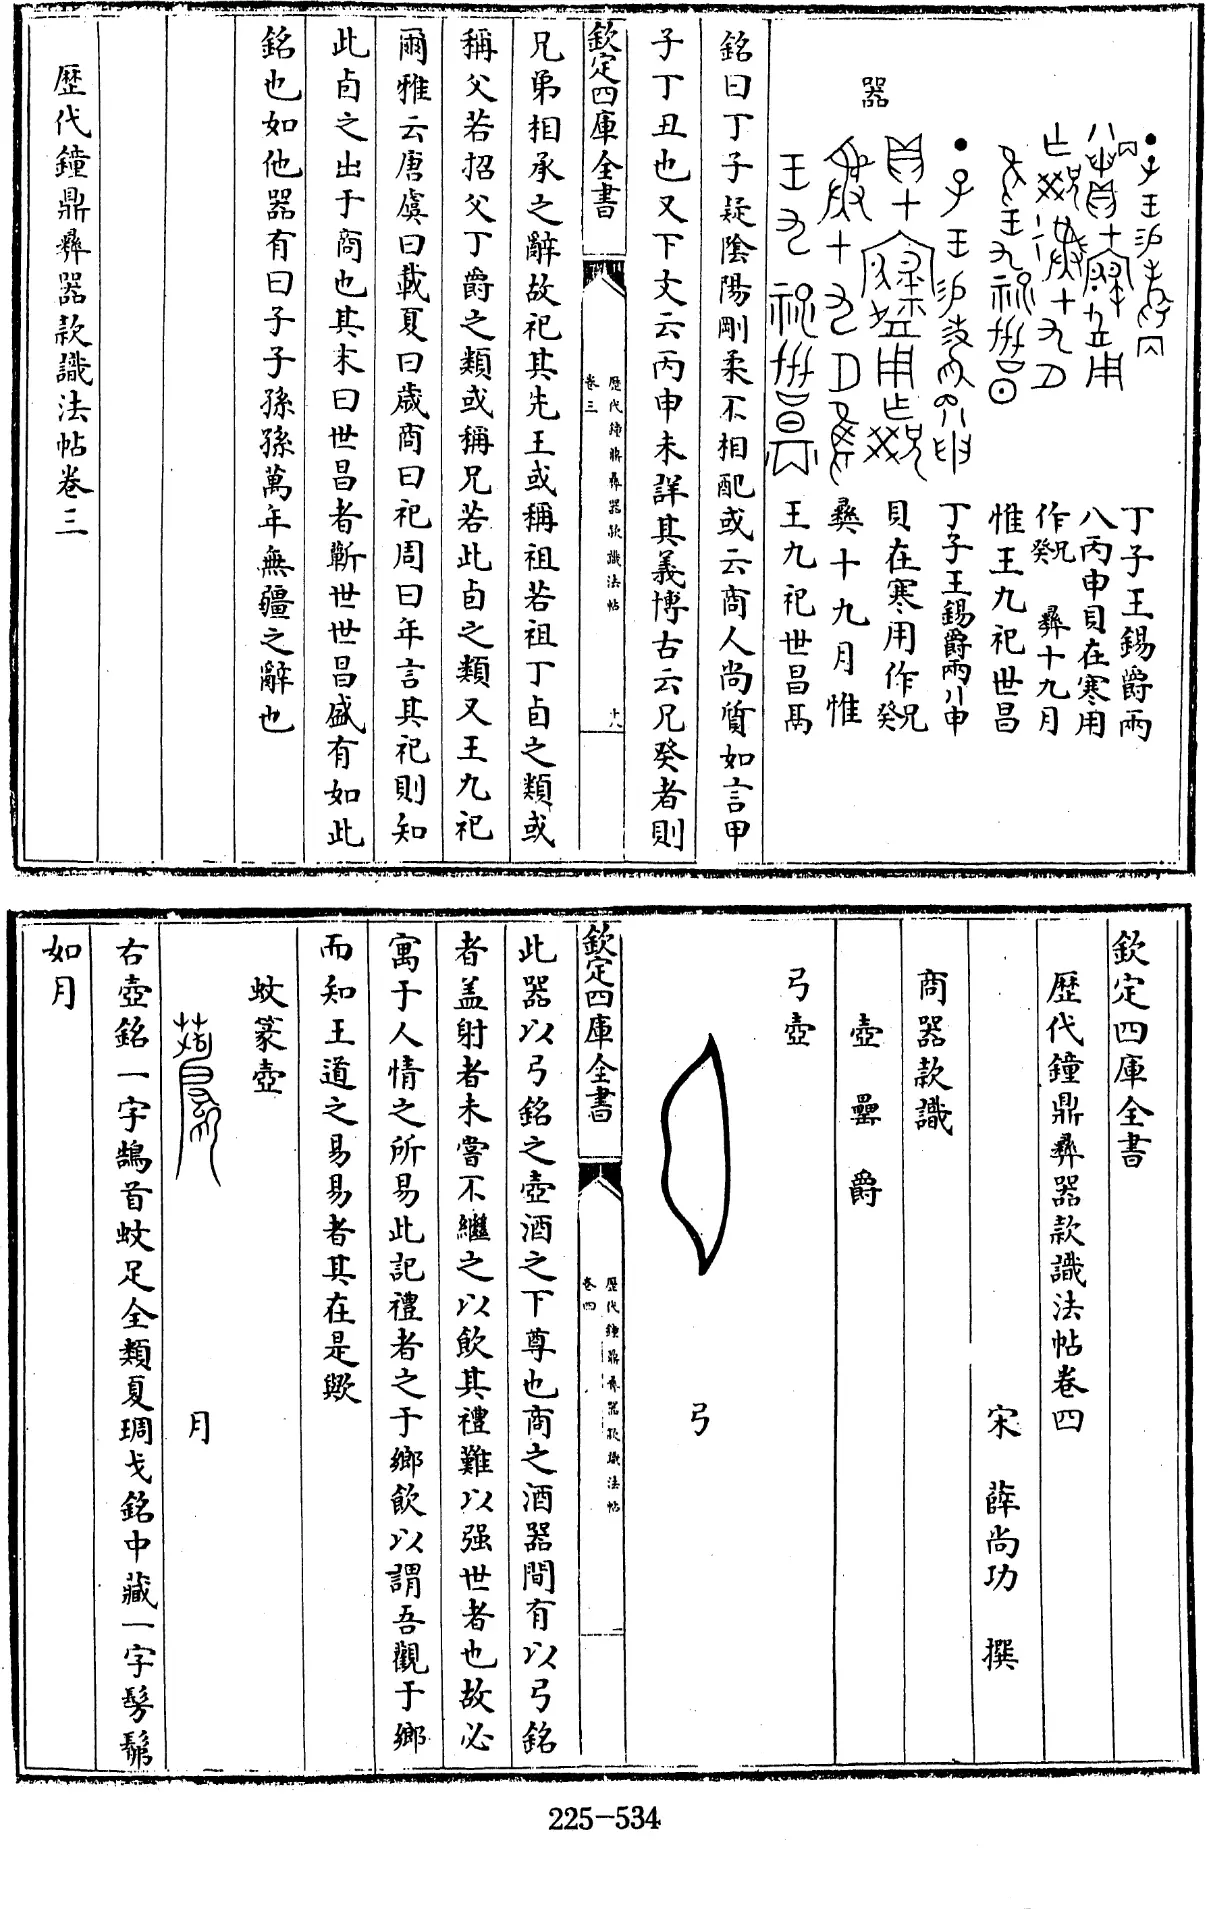 器
丁子王錫爵兩
八丙申貝在寒用
作兄癸 彝十九月
惟王九祀世昌
丁子王錫爵兩八申
貝在寒用作兄癸
彝十九月惟
王九祀世昌禼
銘曰丁子疑陰陽剛柔不相配或云商人尚質如言甲
子丁丑也又下文云丙申未詳其義博古云兄癸者則
欽定四庫全書
歷代鐘鼎彝器款識法帖
卷三
十八
兄弟相承之辭故祀其先王或稱祖若祖丁卣之類或
稱父若招父丁爵之類或稱兄若此卣之類又王九祀
爾雅云唐虞曰載夏曰歲商曰祀周曰年言其祀則知
此卣之出于商也其末曰世昌者蘄世世昌盛有如此
銘也如他器有曰子子孫孫萬年無疆之辭也
歷代鐘鼎彝器款識法帖卷三
欽定四庫全書
歷代鐘鼎彝器款識法帖卷四
宋 薛尚功 撰
商器款識
壺 罍 爵
弓壺
弓
欽定四庫全書
歷代鐘鼎彝器款識法帖
卷四
一
此器以弓銘之壺酒之下尊也商之酒器間有以弓銘
者蓋射者未嘗不繼之以飲其禮難以强世者也故必
寓于人情之所易此記禮者之于鄉飲以謂吾觀于鄉
而知王道之易易者其在是歟
蚊篆壺
月
右壺銘一字鵠首蚊足全類夏琱戈銘中藏一字髣髴
如月
225-534